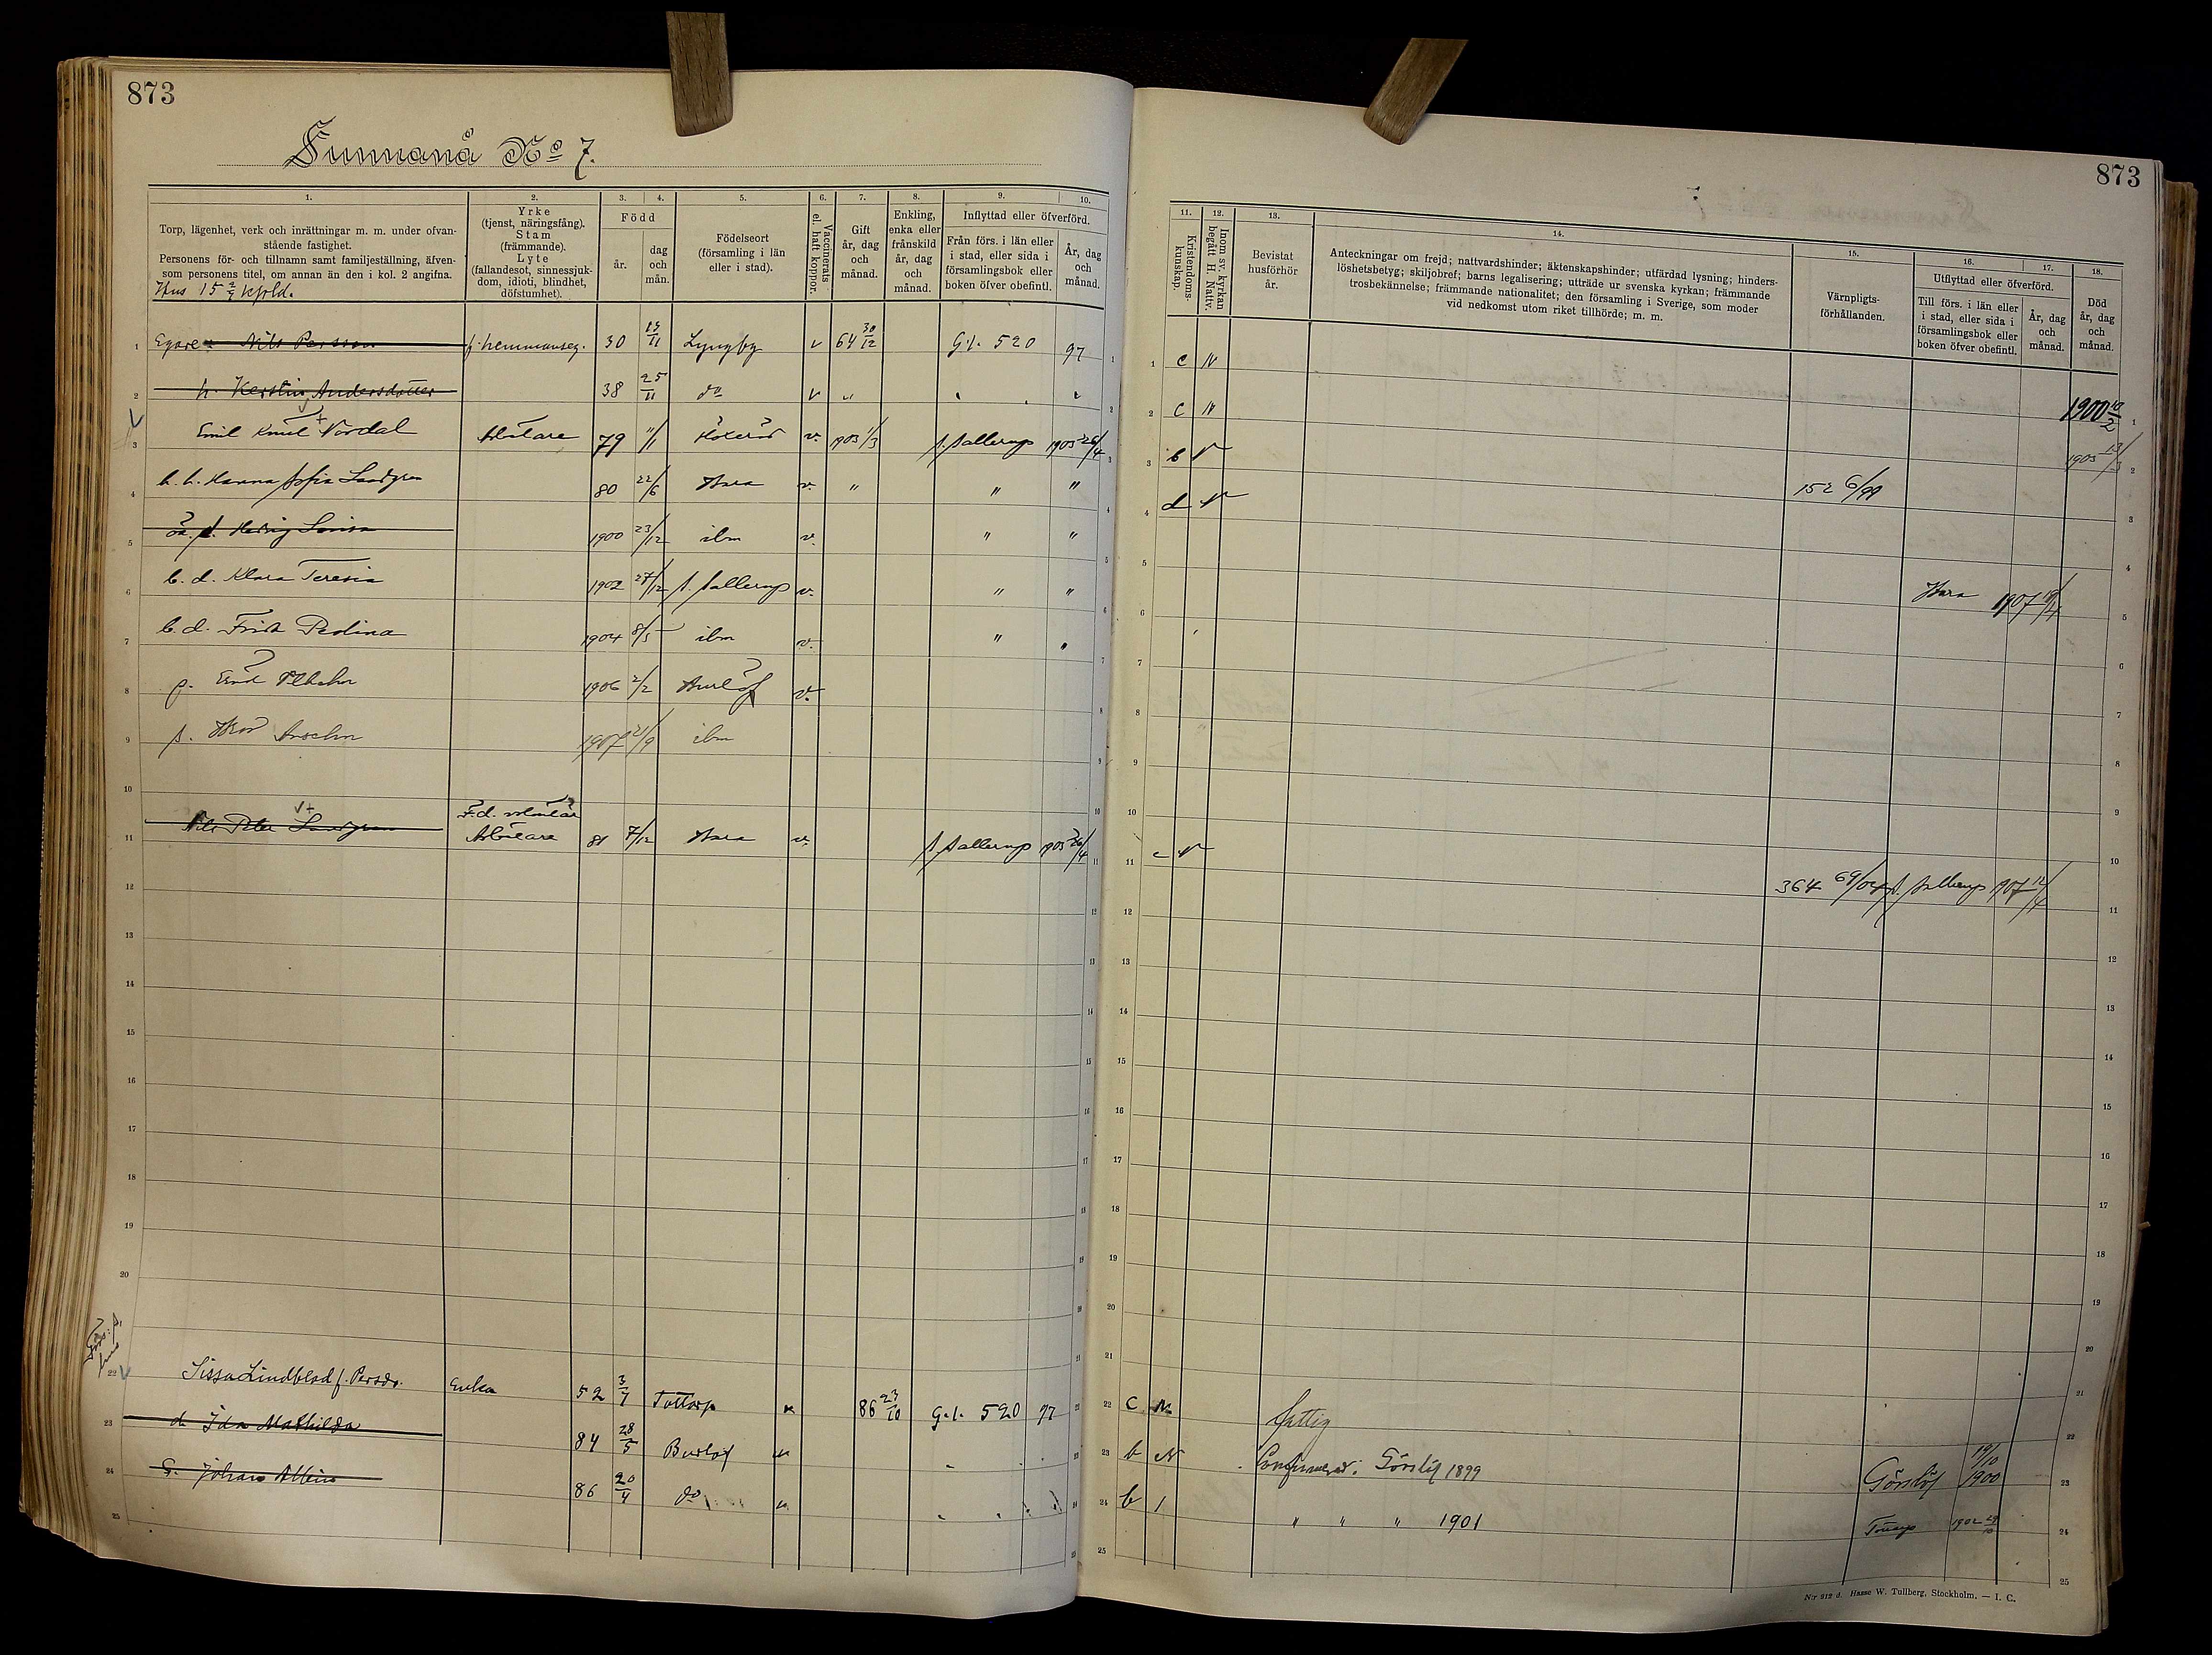 873
Sunnanå No 7.
1.
2.
3.
4.
5.
6.
7.
8.
9.
10.
Torp, lägenhet, verk och inrättningar m. m. under ofvan-
stående fastighet.
Personens för- och tillnamn samt familjeställning, äfven-
som personens titel, om annan än den i kol. 2 angifna.
Hus 15
Yrke
(tjenst, näringsfång).
Stam
(främmande).
Lyte
(fallandesot, sinnessjuk-
dom, idioti, blindhet,
döfstumhet).
Född
år.
dag
och
mån.
Födelseort
(församling i län
eller i stad).
Vaccinerats
el. haft koppor.
Gift
år, dag
och
månad.
Enkling,
enka eller
frånskild
år, dag
och
månad.
Inflyttad eller öfverförd.
Från förs. i län eller
i stad, eller sida i
församlingsbok eller
boken öfver obefintl.
År, dag
och
månad.
1 Egaren Nils Persson f. hemmanseg. 30 13/11 Lyngby v 64 30/12 G.l. 520 97 1
2 h. Kerstin Andersdotter 38 25/11 do v " " " 2
3 Emil Knut Nordal Arbetare 79 11/1 v. 1903 1/3 S. Sallerup 1905 26/4 3
4 h. h. Hanna Sofia Landgren 80 22/6 Bara v. " " " 4
5 oä. d. Hedvig Lovisa 1900 23/12 ibm v. " " 5
6 b. d. Klara Teresia 1902 27/12 S. Sallerup v. " " 6
7 b. d. Frida Paulina 1904 8/5 ibm v. " " 7
8 s. Vilhelm 1906 2/2 Burlöf v. 8
9 s. Anselm 1907 21/9 ibm 9
10 F.d. 10
11 Nils Peter Landgren Arbetare 81 7/12 Bara v. S. Sallerup 1905 26/4 11
12 12
13 13
14 14
15 15
16 16
17 17
18 18
19 19
20 20
21
22 Sissa Lindblad f. Persdr. Enka 52 3/7 Tottarp v 86 23/10 G.l. 520 97 22
23 d. Ida Mathilda 84 28/5 Burlöf v " " 23
24 S. Johan Albin 86 20/4 do v " " 24
25 25
873
11.
12.
13.
14.
15.
16.
17.
18.
Kristendoms-
kunskap.
Inom sv. kyrkan
begått H. Nattv.
Bevistat
husförhör
år.
Anteckningar om frejd; nattvardshinder; äktenskapshinder; utfärdad lysning; hinders-
löshetsbetyg; skiljobref; barns legalisering; utträde ur svenska kyrkan; främmande
trosbekännelse; främmande nationalitet; den församling i Sverige, som moder
vid nedkomst utom riket tillhörde; m. m.
Värnpligts-
förhållanden.
Utflyttad eller öfverförd.
Till förs. i län eller
i stad, eller sida i
församlingsbok eller
boken öfver obefintl.
År, dag
och
månad.
Död
år, dag
och
månad.
1 c N 1900 10/2 1
2 c N 1905 13/3 2
3 b N 152 6/99 3
4 d N 4
5 Bara 1907 5
6 6
7 7
8 8
9 9
10 10
11 c N 364 69/02 S. Sallerup 1907 12/4 11
12 12
13 13
14 14
15 15
16 16
17 17
18 18
19 19
20 20
21 21
22 C N fattig 22
23 b N Confirmerad i Görslöf 1899 Görslöf 19/10 1900 23
24 b 1 " " " 1901 1902 29/10 24
25 25
N:r 212 d. Hasse W. Tullberg, Stockholm. — I. C.